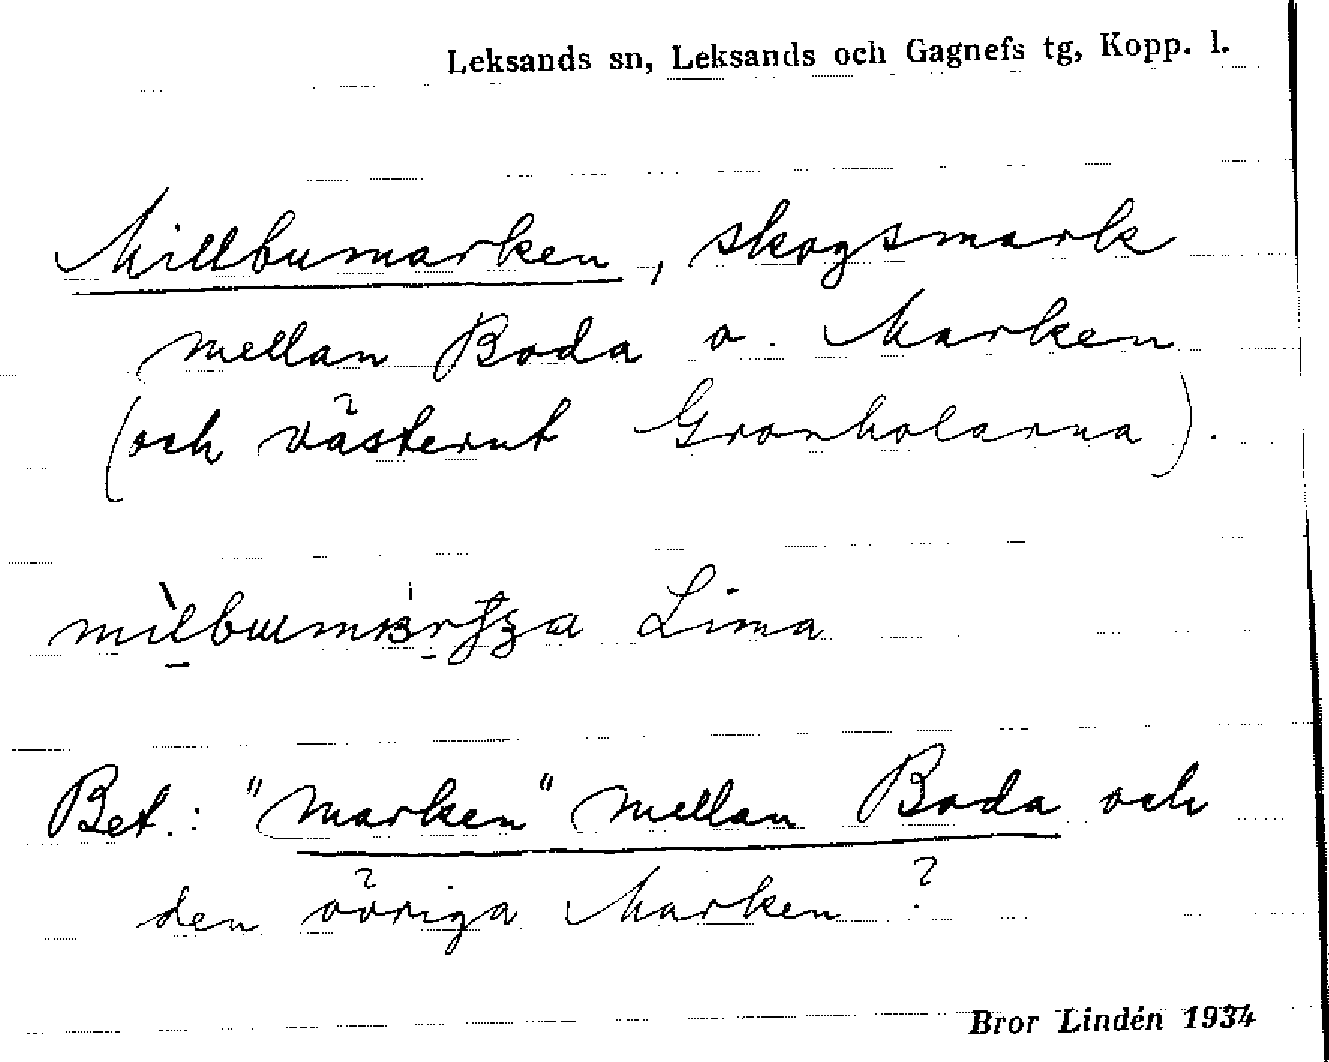 Leksands sn, Leksands och Gagnefs tg, Kopp. l.
Millbumarken, skogsmark
mellan Boda o. Marken
(och västerut Gronholarna).
Lima
Bet.: "marken" mellan Boda och
den övriga Marken?
Bror Lindén 1934